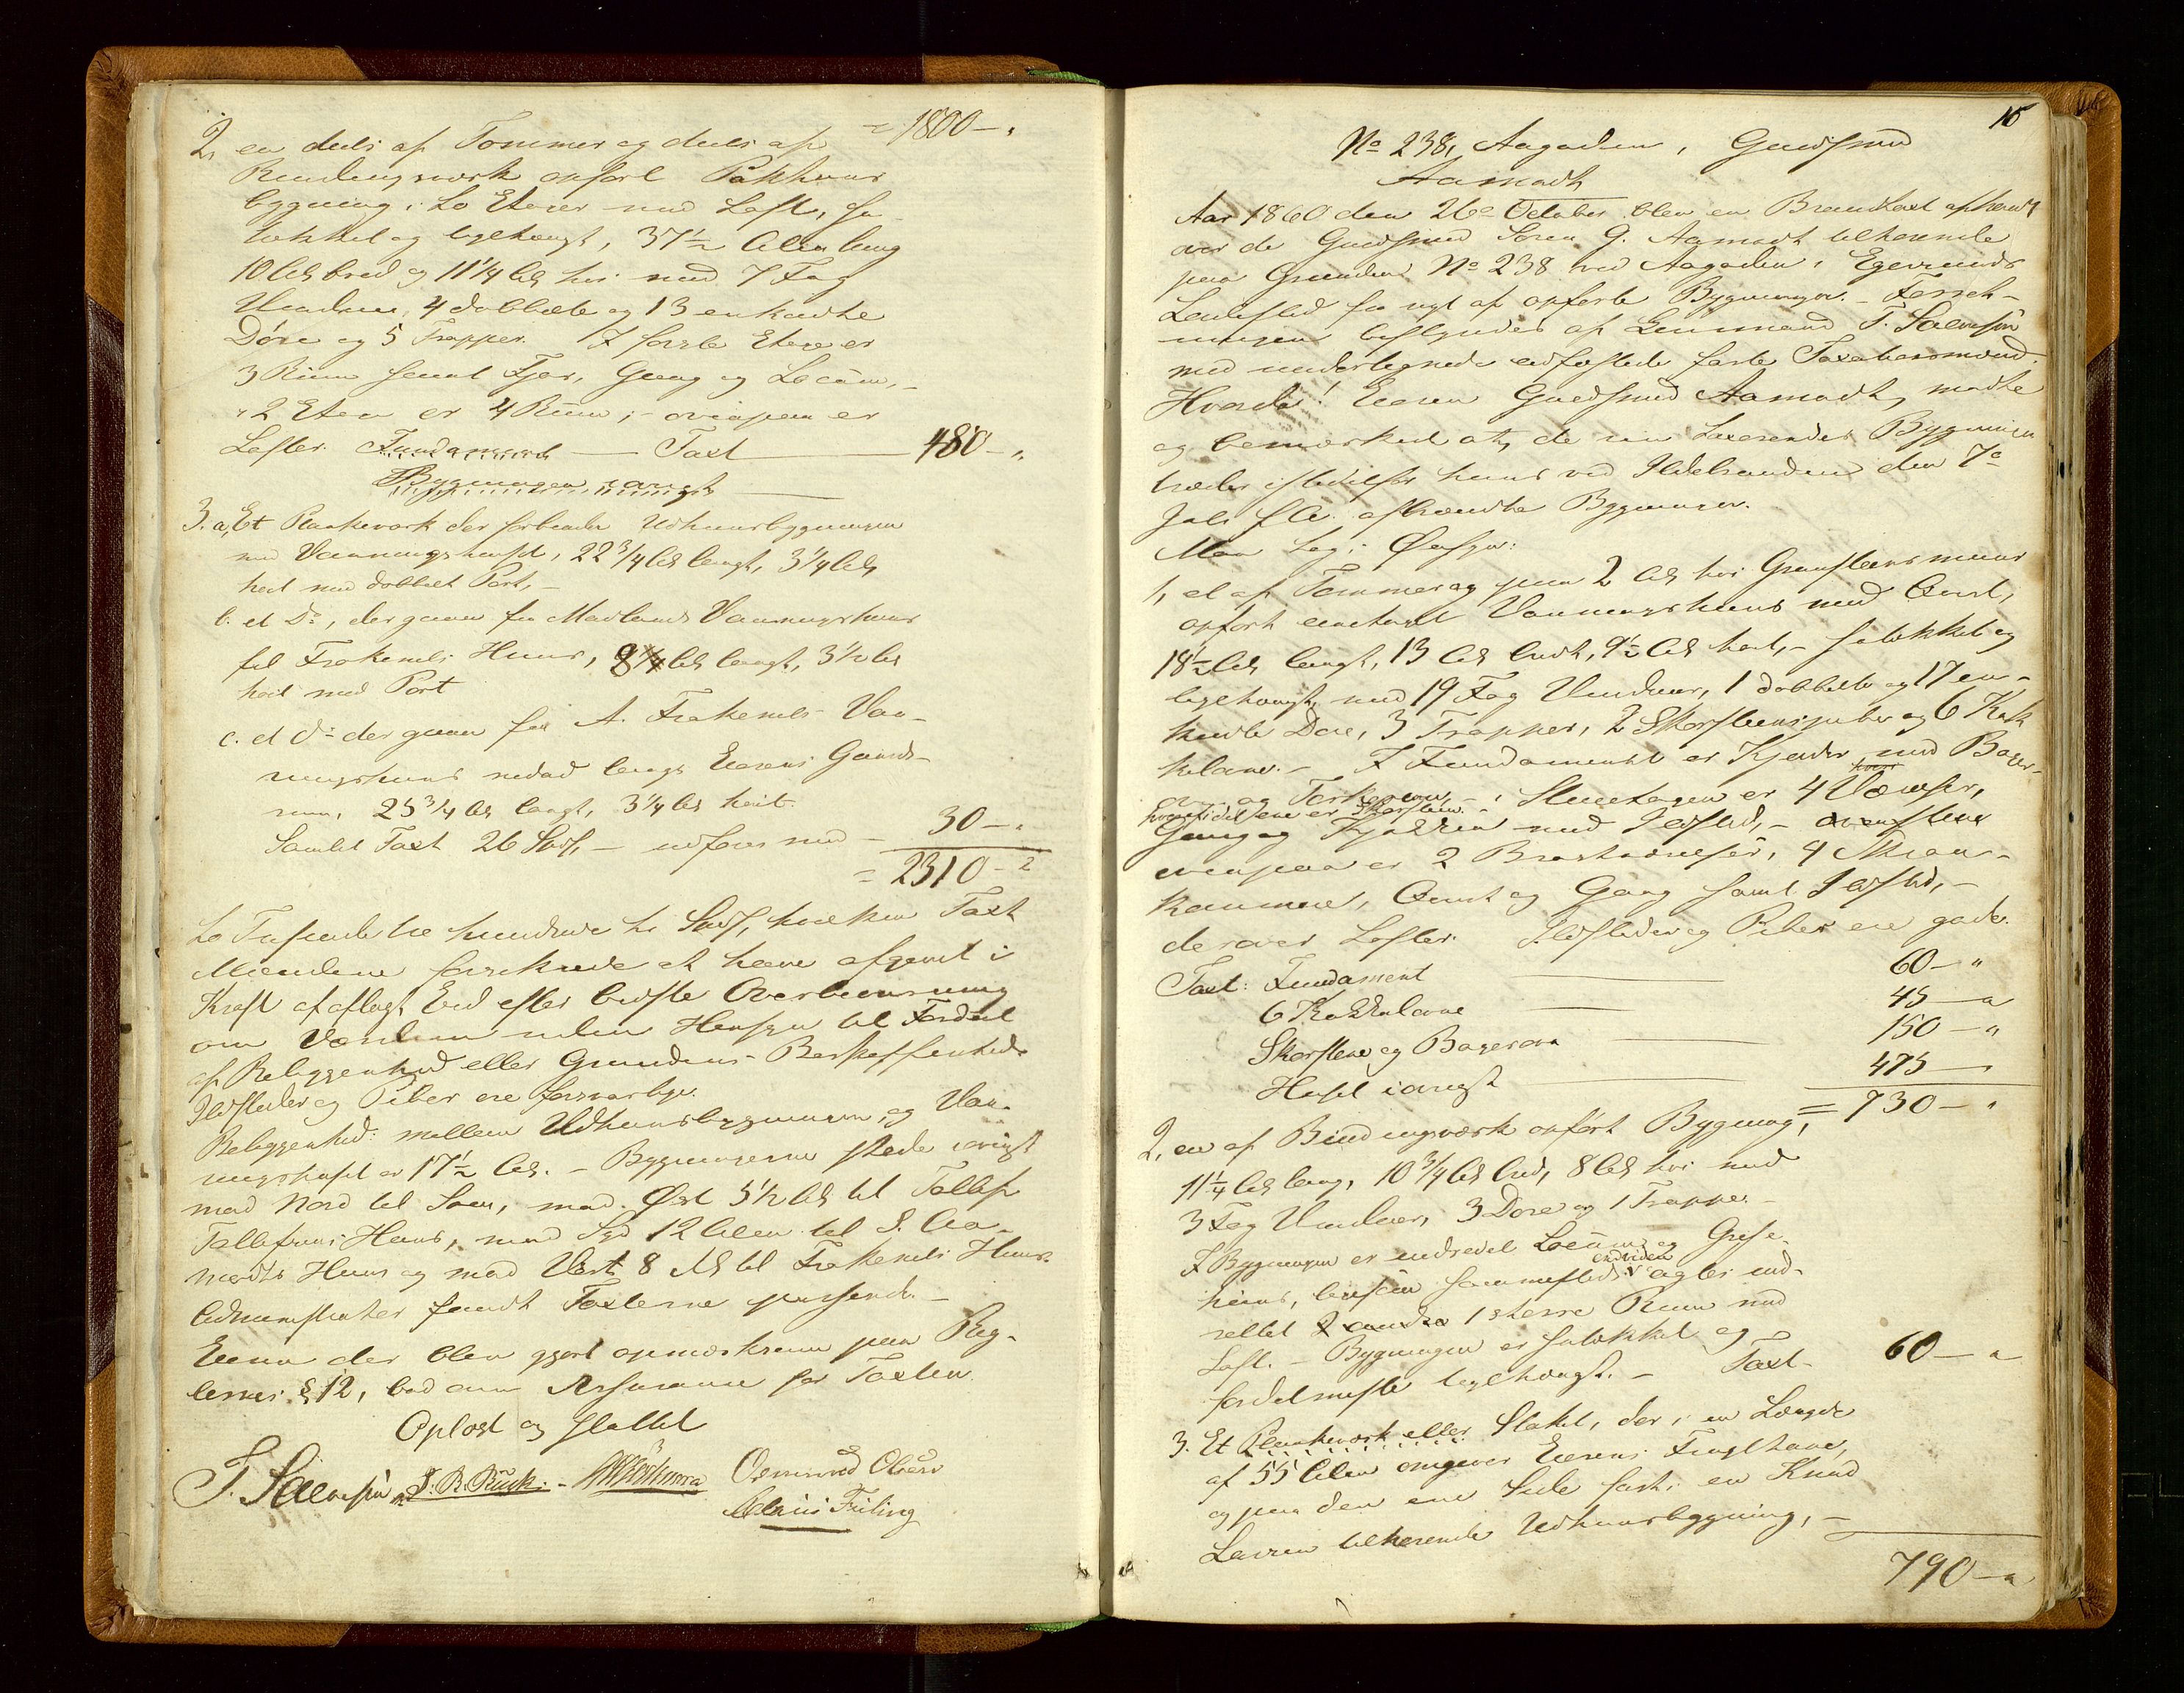 = 1800 – "
2, en deels af Tømmer og deels af
Bindingsværk opført Pakhuus
bygning i to Etager med Loft, pa-
nelklæt og teglhængt, 37½ Alen lang
10 Al. bred og 11¼ Al. høi med 7 Fag
Vinduer, 4 dobbelte og 13 enkelte
Døre og 5 Trapper. I første Etage er
3 Rum samt Fjøs, Gang og Locum, –
i 2 Etage er 4 Rum; – ovenpaa er
Lofter. Fundament — Taxt — 480 – "
Bygningen iøvrigt —
3. a, Et Plankeværk der forbinder Udhuusbygningen
med Vaaningshuset, 22¾ Al. langt, 3¼ Al.
høit med dobbelt Port, –
b. et Do, der gaaer fra Madlands Vaaningshuus
til Frøkenels Huus, 8¼ Al. langt, 3½ Al.
høit med Port
c. et do der gaaer fra A. Frøkenels Vaa-
ningshuus nedad langs Eierens Gaards-
rum, 25¾ Al. langt, 3¼ Al. høit
Samlet Taxt 26 Spd., – udføres med – 30 – "
= 2310 – "
to Tusinde tre hundrede ti Spd, hvilken Taxt
Mændene forsikrede at have afgivet i
Kraft af aflagt Eed efter bedste Overbeviisning
om Værdien uden Hensyn til Fordeel
af Beliggenhed eller Grundens Beskaffenhed.
Ildsteder og Piber ere forsvarlige.
Beliggenhed: mellem Udhuusbygningen og Vaa-
ningshuset er 17½ Al. – Bygningerne støde iøvrigt
mod Nord til Søen, mod Øst 5½ Al. til Tollef
Tollefsens Huus, mod Syd 12 Alen til S. Aa-
modts Huus og mod Vest 8 Al. til Frøkenels Huus.
Administrator fandt Taxterne passende. –
Eieren der blev gjort opmærksom paa Reg-
lernes § 12, bad om Assurance for Taxten.
Oplæst og sluttet
T. Salvesen J. B. Puck. – Osmund Olsen
Adrian Feiling
15
No 238, Aagaden, Guldsmed
Aamodt
Aar 1860 den 26de October blev en Brandtaxt afholdt
over de Guldsmed Søren G. Aamodt tilhørende
paa Grunden No 238 ved Aagaden i Egersunds
Ladested fra nyt af opførte Bygninger. – Forret-
ningen bestyredes af Lensmand T. Salvesen
med undertegnede edfæstede faste Taxationsmænd.
Hvorda! Eieren Guldsmed Aamodt, mødte
og bemærkede at, de nu taxerendes Bygninger
træder istedetfor hans ved Ildebranden den 7de
Juli f. A. afbrændte Bygninger.
Man tog i Øiesyn:
1, et af Tømmer og paa 2 Al. høi Graasteensmuur
opført eenetages Vaaningshuus med Qvist,
18½ Al. langt, 13 Al. bredt, 9½ Al. høit, – panelklæt og
teglhængt, med 19 Fag Vinduer, 1 dobbelte og 17 en-
kelte Døre, 3 Trapper, 2 Skorsteenspiber og 6 Kak
kelovne. – I Fundamentet er Kjelder med Bager-
ovn og Tørkeovn, – i Stueetagen er 4 Værelser,
Gang og Kjøkken med Ildsted, –
ovenpaa er 2 Brystværelser, 4 Skraa-
kammere, Qvist og Gang samt Ildsted, –
derover Lofter. Ildsteder og Piber ere gode.
Taxt: Fundament — 60 – "
6 Kakkelovne — 45 – "
Skorstene og Bagerovn — 150 – "
Huset iøvrigt — 475 –
= 730 – "
2, en af Bindingsværk opført Bygning,
11¼ Al. lang, 10¾ Al. bred, 8 Al. høi med
3 Fag Vinduer, 3 Døre og 1 Trappe. –
I Bygningen er indredet Locum og Grise-
huus, sammesteds endviden er ind-
rettet 1 større Rum med
Loft. – Bygningen er panelklæt og
fordetmeste teglhængt. – Taxt – 60 – "
3. Et Plankeværk eller Staket, der i en Længde
af 55 Alen omgiver Eierens Frugthave,
og paa den ene Side fast i en Knud
Larsen tilhørende Udhuusbygning, –
790 – "